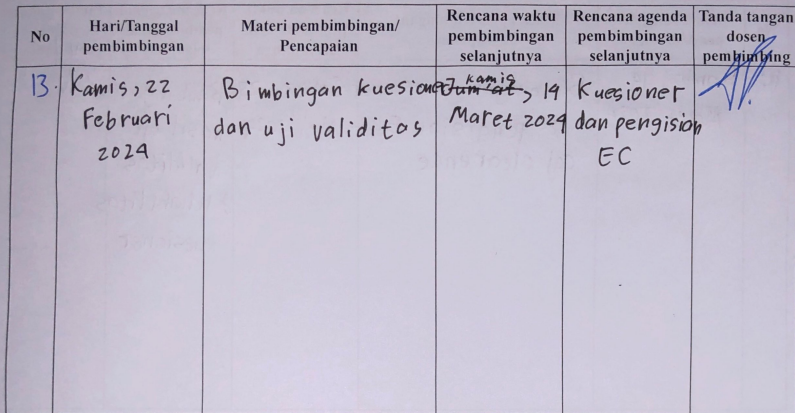 No
Hari/Tanggal
pembimbingan
Materi pembimbingan/
Pencapaian
Rencana waktu
pembimbingan
selanjutnya
Rencana agenda
pembimbingan
selanjutnya
Tanda tangan
dosen
pembimbing
13.
Kamis, 22
Februari
2024
Bimbingan kuesioner
dan uji validitas
kamis
Jum'at, 14
Maret 2024
Kuesioner
dan pengisian
EC